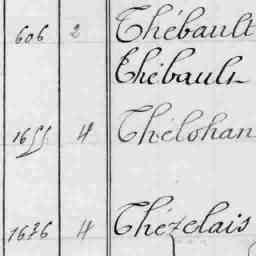 606 2 Thébault
Thébault
1655 4 Thélohan
1676 4 Thézelais